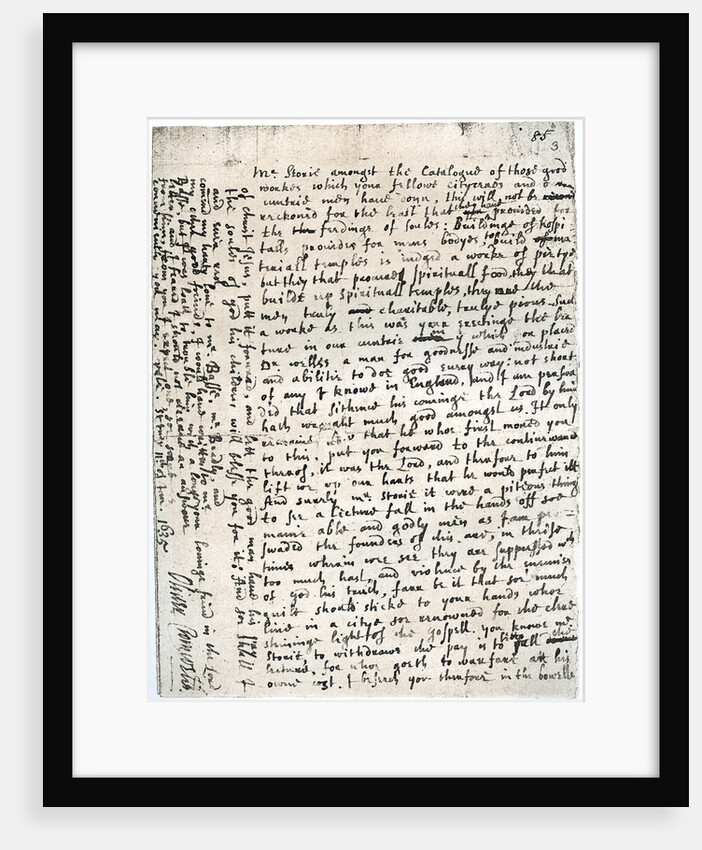 85
3
Mr Storie amongst the Catalogue of those good
workes which your fellowe citycenes and
cuntrie men have donn, this will not be
reckoned for the least that they have provided for
the feedings of soules: Buildinge of hospi
talls provides for mens bodyes, to build ma
teriall temples is judged a worke of pietye
but they that procure spirituall food, they that
builde up spirituall temples, they are the
men truly charitable, trulye pious. Such
a worke as this was your erectinge the lec
ture in our cuntrie in which you placed
Dr Welles a man for goodnesse and industrie
and abilitie to doe good every way: not short
of any I knowe in England, and I am perswa
ded that sithence his cominge the Lord by him
hath wrought much good amongst us. It only
that he whoe first moved you
to this, put you forward to the continewance
therof, it was the Lord, and therfore to him
lift we up our harts that he would perfect itt
And surely Mr Storie it were a piteous thinge
to see a lecture fall in the hands off soe
manie able and godly men as I am per
swaded the founders of this are, in these
times wherin wee see they are suppressed with
too much hast, and violence by the enimies
of god his truth, farr be it that soe much
guilt should sticke to your hands whoe
live in a citye so renowned for the clere
shininge light of the gospell. you knowe Mr
Storie to withdrawe the pay is to lett fall the
lecture, for whoe goeth to warfare att his
owne cost. I beseech you therfore in the bowells
of christ Jesus, putt it forward, and lett the good man have his pay
the soules of god his children will bless you for it: And soe shall I
and ever rest your lovinge freind in the Lord
comend my harty love to Mr Basse, Mr Bradly, and
my other good friends. I would have written to Mr
Basse, but I was loath to trouble him with a longe
letter, and I feared I should not receave an answeare
from him, from you I expect one soe soone as
conveniently you may. vale. St Ives 11th of Jan. 1635
Oliver Cromwell.